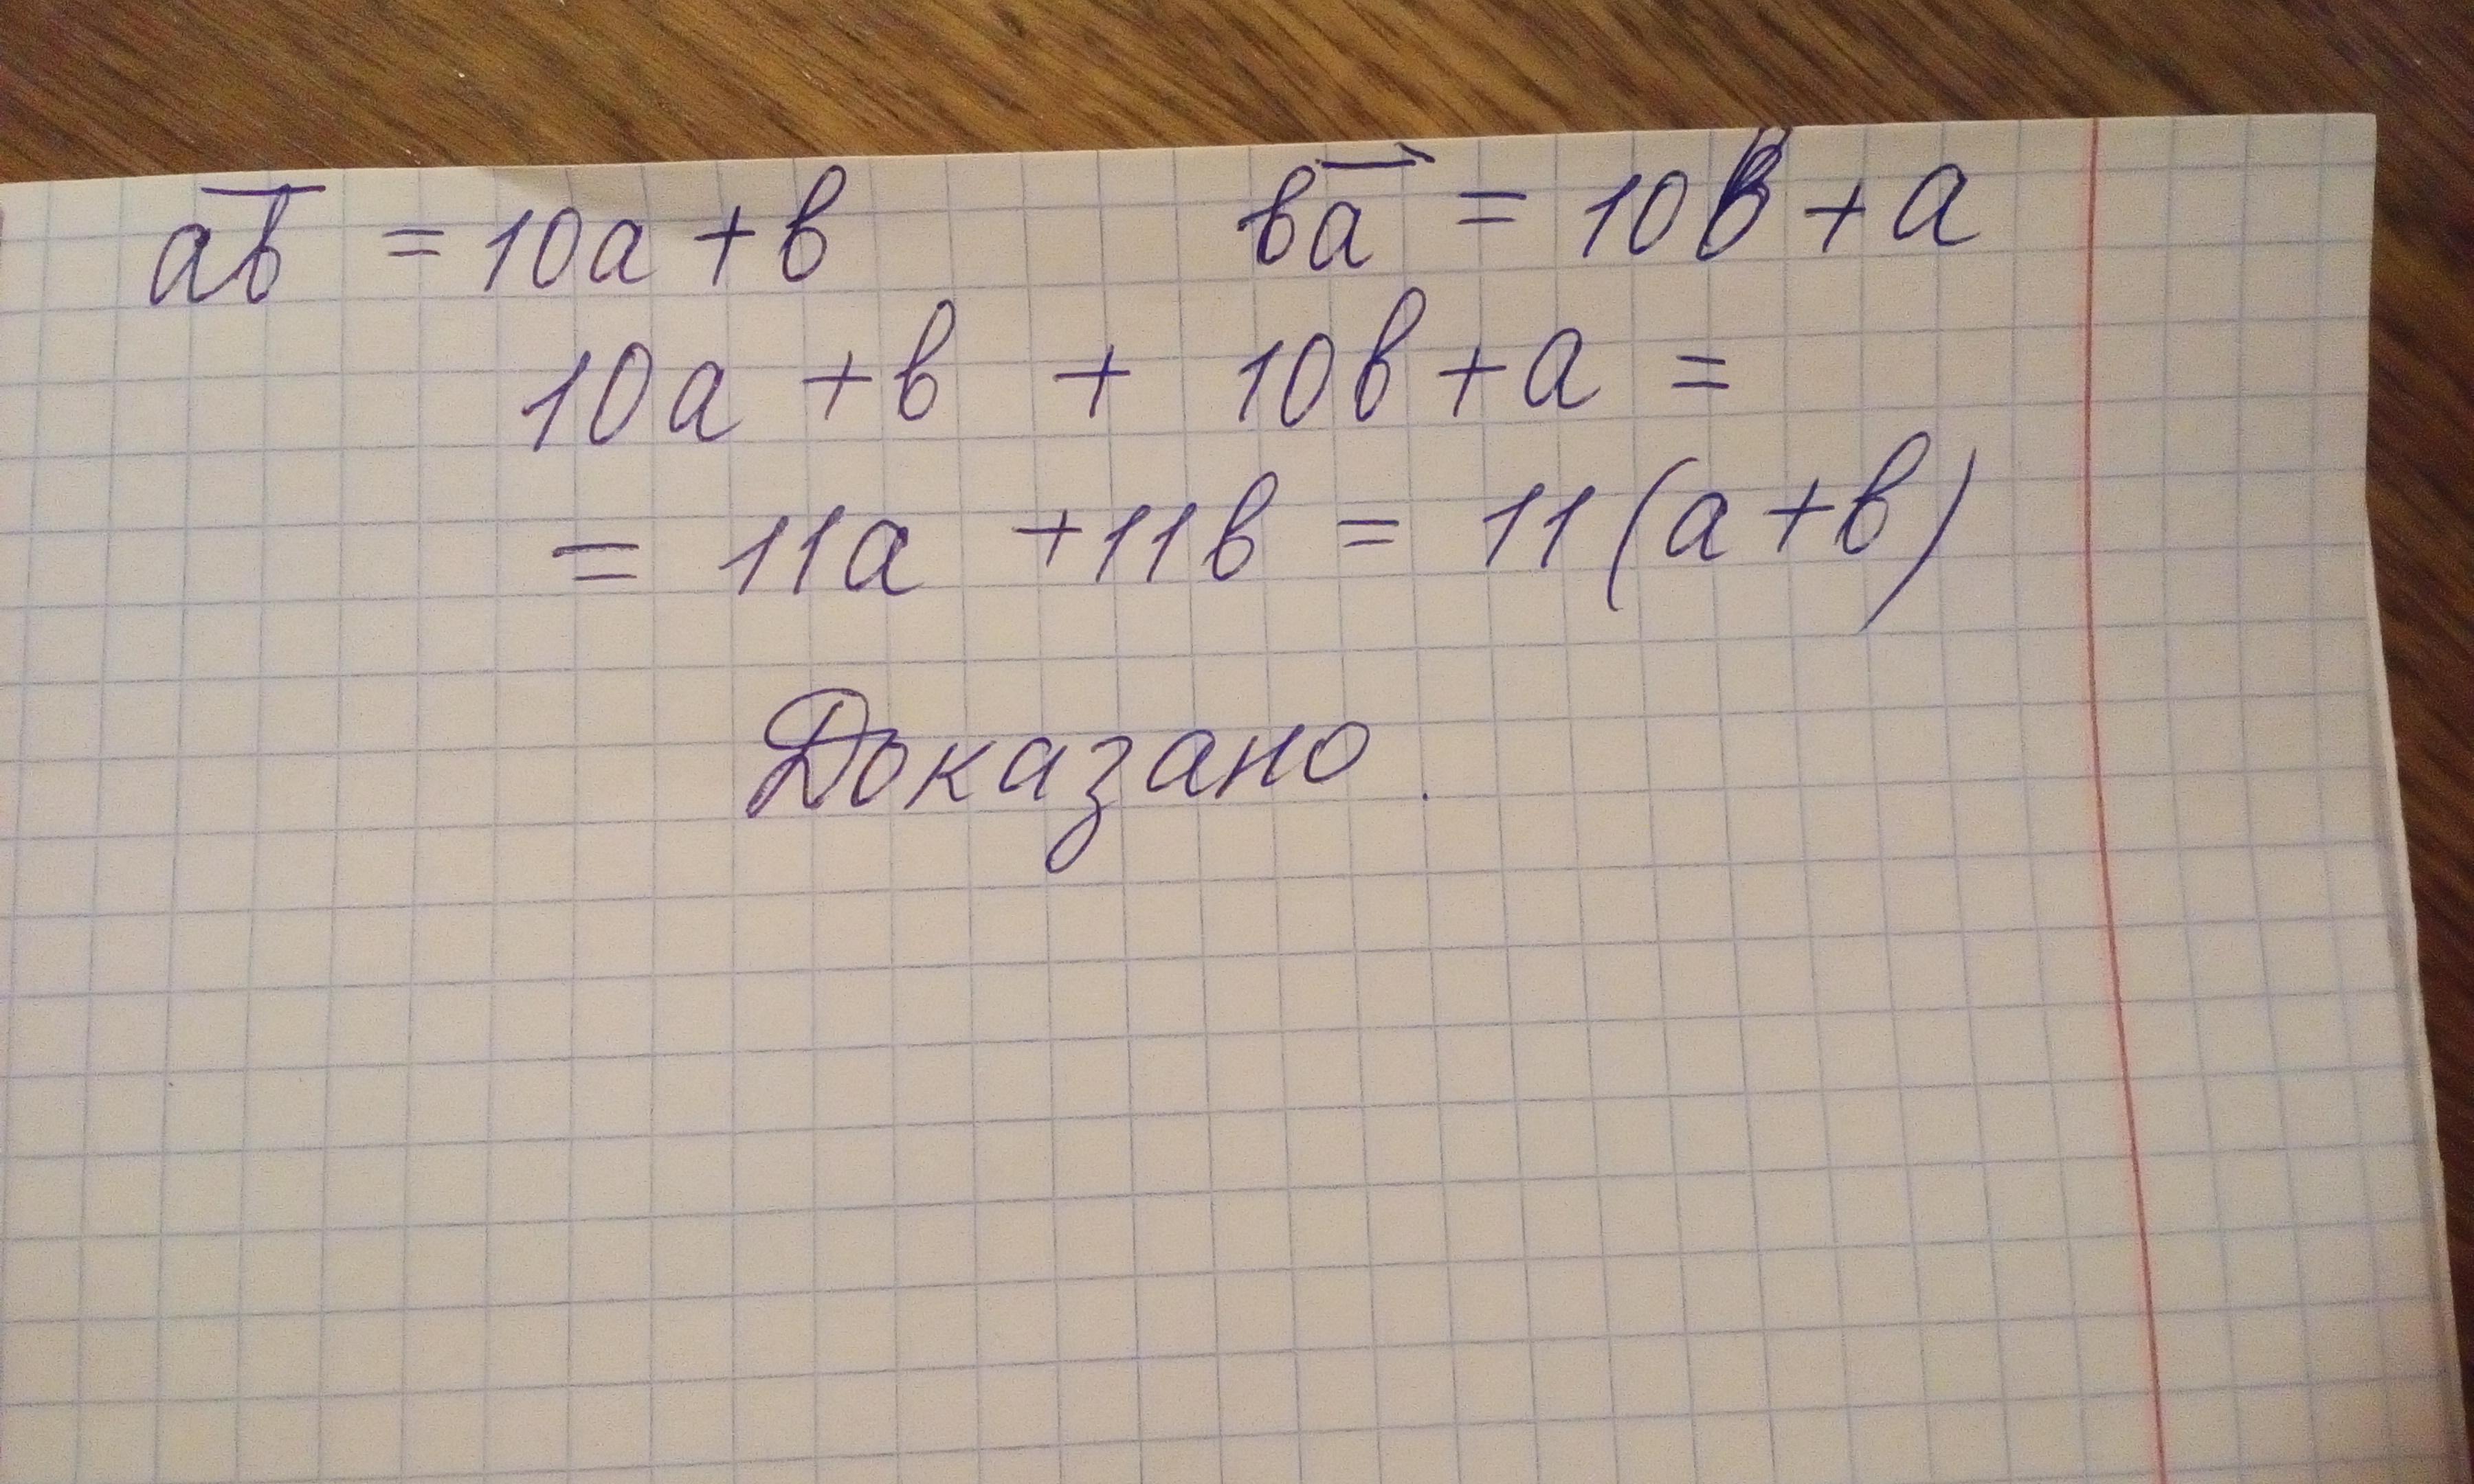 ab = 10a + b ba = 10b + a
10a + b + 10b + a =
= 11a + 11b = 11(a + b)
Доказано.